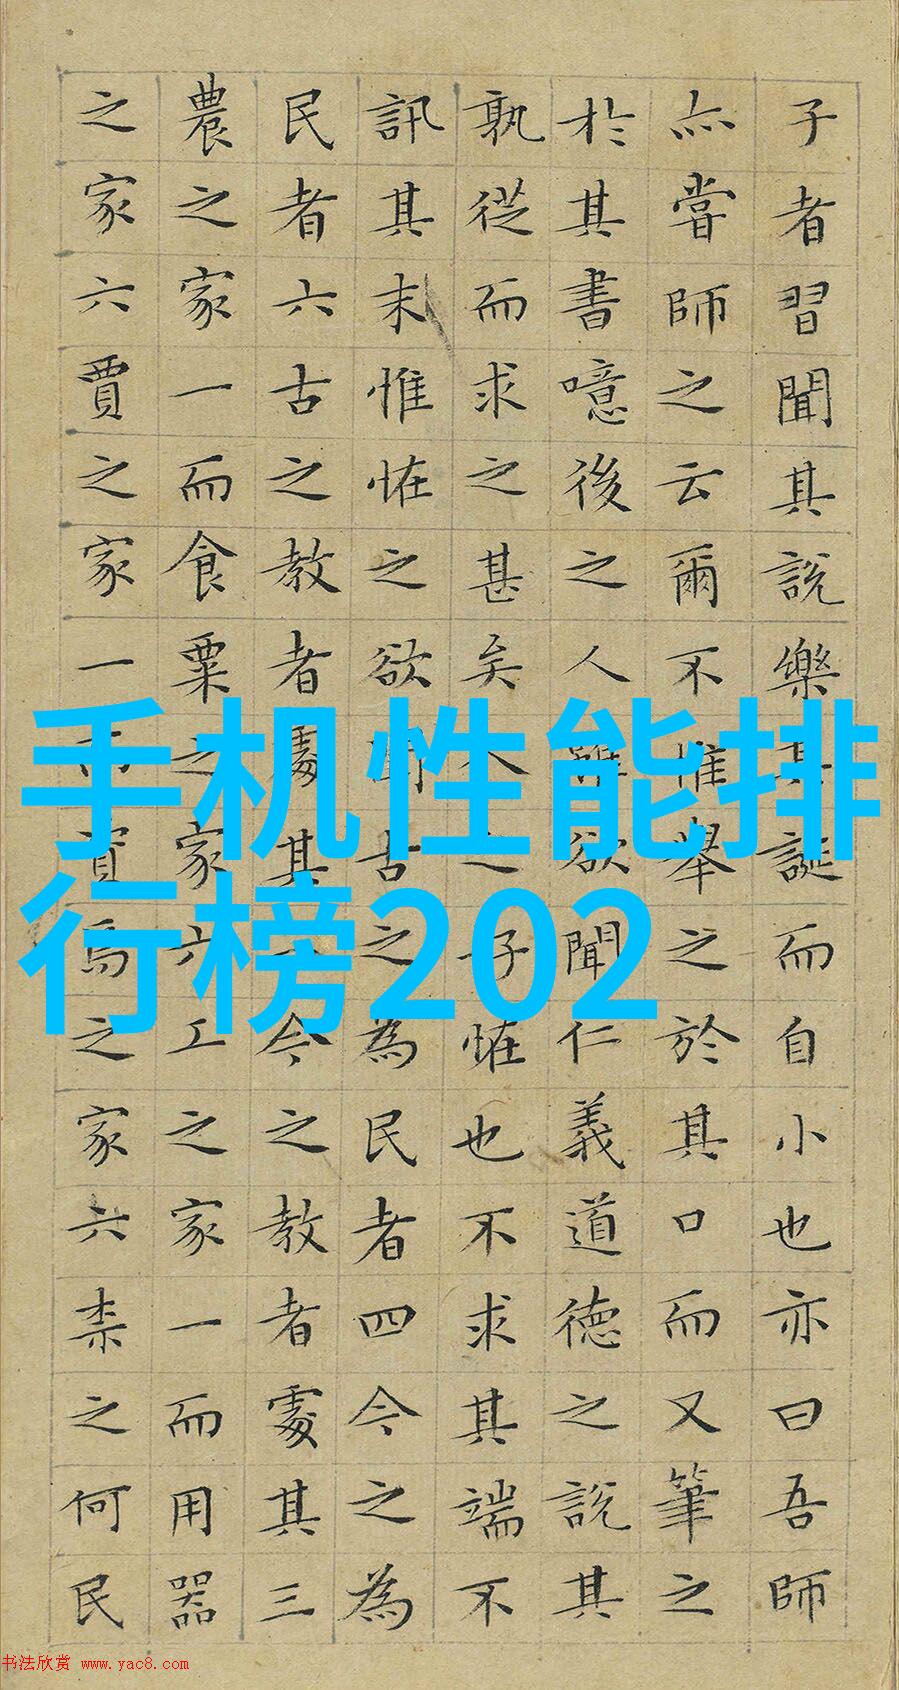 子者習聞其說樂其誕而自小也亦曰吾師
亦嘗師之云爾不惟舉之於其口而又筆之
於其書噫後之人雖欲聞仁義道德之說其
孰從而求之甚矣人之好恠也不求其端不
訊其末惟恠之欲聞古之為民者四今之為
民者六古之教者處其一今之教者處其三
農之家一而食粟之家六工之家一而用器
之家六賈之家一而資焉之家六柰之何民
手机性能排
行榜202
书法欣赏 www.yac8.com